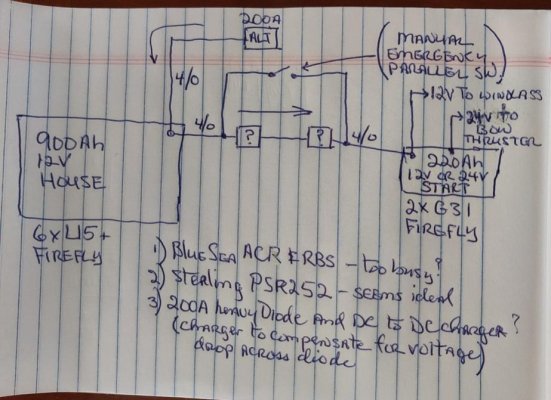 200A
ALT
(MANUAL
EMERGENCY
PARALLEL SW.)
4/0
12V TO WINDLASS
24V TO
BOW
THRUSTER
4/0
?
?
4/0
900Ah
12V
HOUSE
220Ah
12V OR 24V
START
6x L15+
FIREFLY
2X G31
FIREFLY
1) BLUE SEA ACR & RBS - too busy?
2) Sterling PSR252 - seems ideal
3) 200A heavy Diode AND DC to DC charger?
(charger to compensate for voltage)
drop across diode